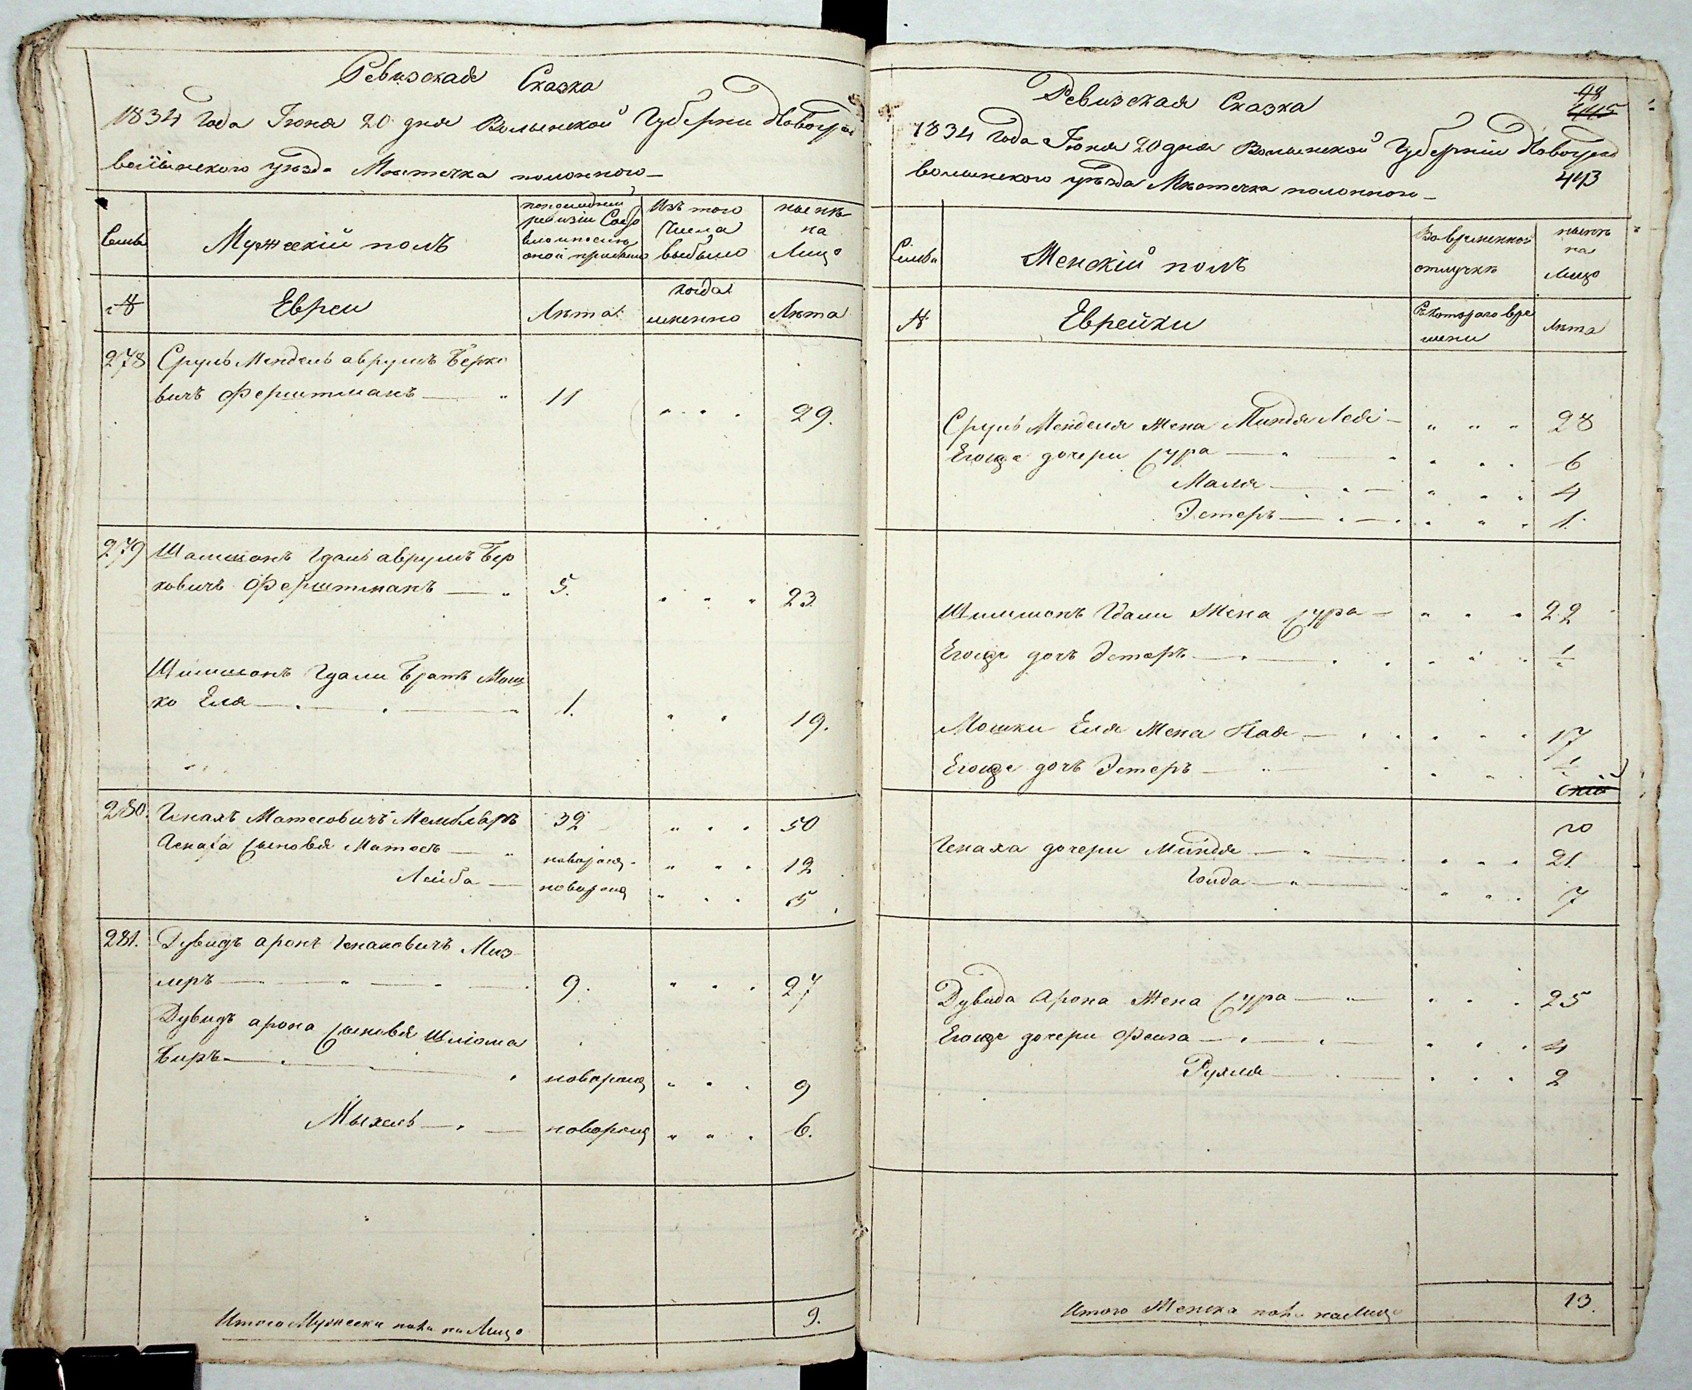 Ревизская Сказка
1834 Года Іюня 20 дня Волынской Губерніи Новоград
волынского уѣзда Мѣстечка полонного
Семьи
Мужескій полъ
по последней ревизіи Состо
яло и после
оной прибыло
Изъ того
Числа
выбыло
ныне
на
Лицо
№
Евреи
Лѣта
когда
именно
Лѣта
278 Сруль Мендель аврумъ Берко
вичъ Ферштманъ 11 29.
279 Шимшонъ Гдали аврумъ Бер
ковичъ Ферштманъ 5. 23
Шимшонъ Гдали Братъ Мош
ко Еля 1. 19.
280. Генахъ Матесовичъ 32 50
Генаха сыновья Матесъ новорожд 12
Лейба новорожд 5
281. Дувидъ аронъ Генаховичъ Миз
леръ 9. 27
Дувидъ арона сыновья Шлiома
Беръ новорожд 9
Мыхель новорожд 6.
Итого Мужеска пола на Лицо 9.
Ревизская Сказка
48
445
1834 Года Іюня 20 дня Волынской Губерніи Новоград
443
волынского уѣзда Мѣстечка полонного
Семьи
Женскій полъ
Во временной
отлучкѣ
ныне
на
лицо
№
Еврейки
Съ котораго вре
мени
Лѣта
Сруль Менделя Жена Миндя Лея 28
Егоже дочери Сура 6
Маля 4
Эстеръ 1.
Шимшонъ Гдали Жена Сура 22
Егоже дочь Эстеръ 1/2
Мошки Еля Жена Хая 17
Егоже дочь Эстеръ 1/2
Генаха дочери Миндя 21
Голда 7
Дувида Арона Жена Сура 25
Егоже дочери Фейга 4
Рухля 2
Итого Женска пола на Лицо 13.